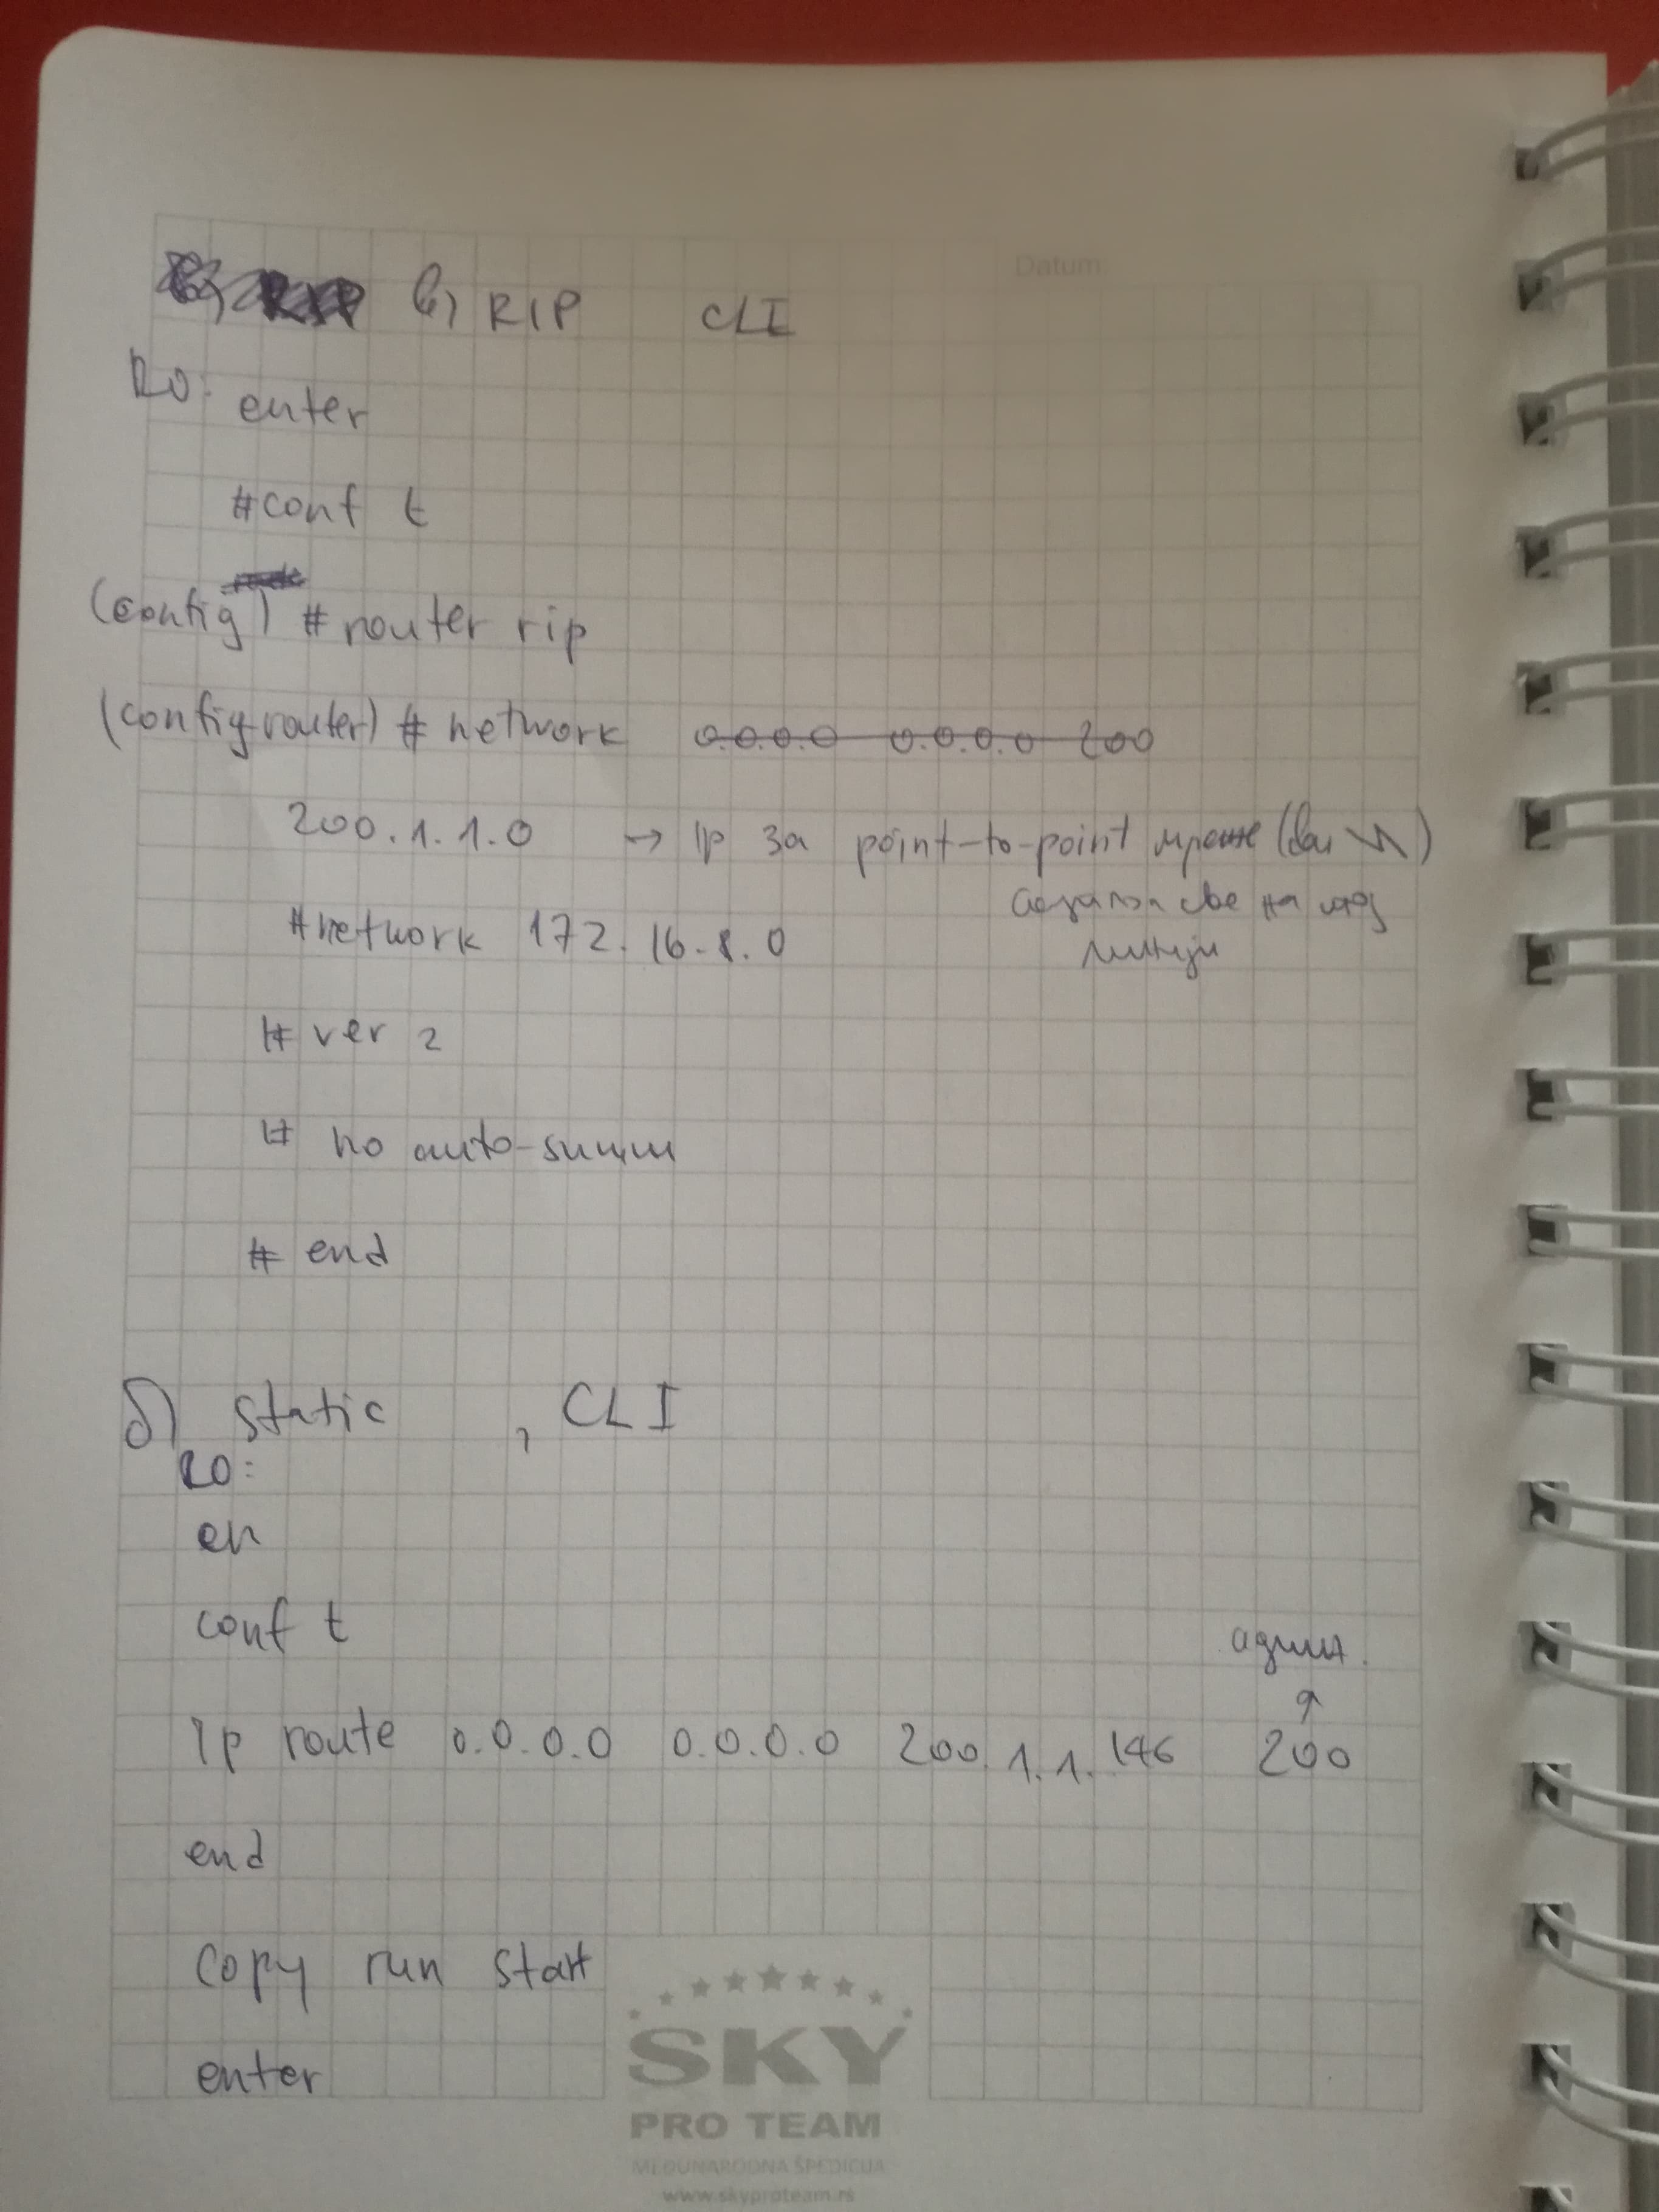 Datum:
в) RIP CLI
R0: enter
#conf t
(config) # router rip
(config-router) # network 0.0.0.0 0.0.0.0 200
200.1.1.0 → Ip за point-to-point мреже (
све на
#network 172.16.8.0
# ver 2
# no auto-summ
# end
б) static , CLI
R0:
en
conf t
админ.
Ip route 0.0.0.0 0.0.0.0 200.1.1.146 200
end
copy run start
enter
SKY
PRO TEAM
MEĐUNARODNA ŠPEDICIJA
www.skyproteam.rs